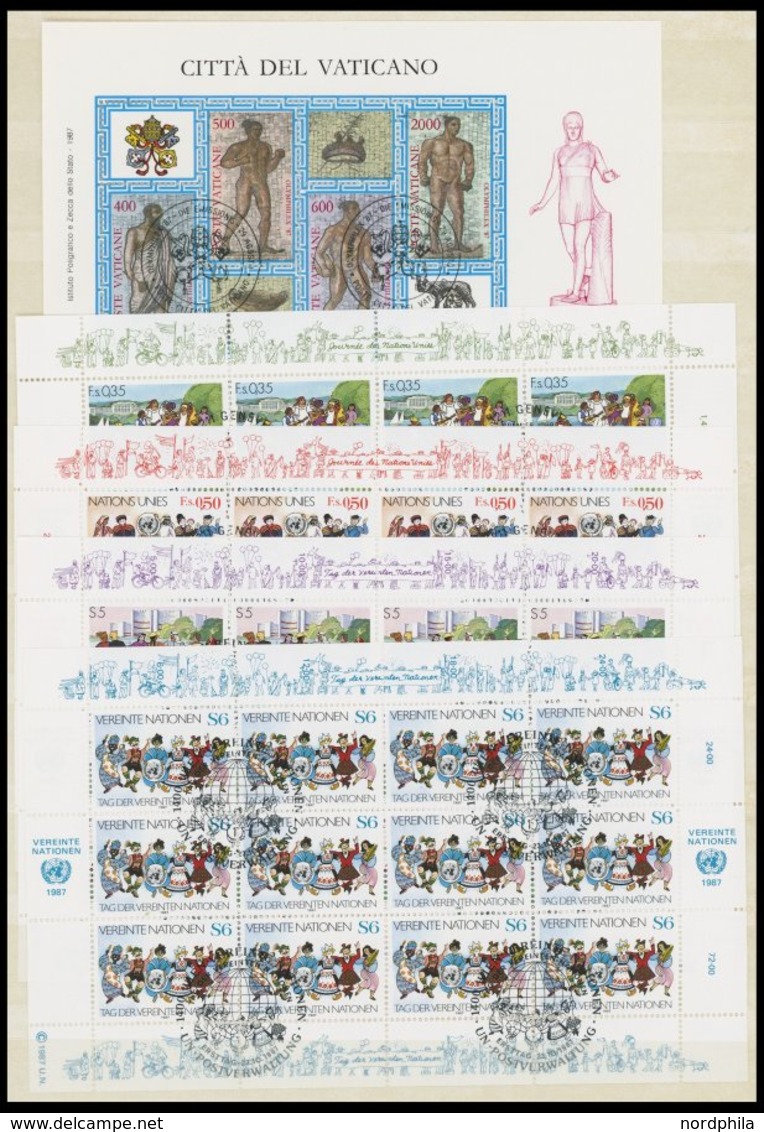 CITTÀ DEL VATICANO
Istituto Poligrafico e Zecca dello Stato - 1987
500
2000
POSTE VATICANE
OLYMPHILEX '87
POSTE VATICANE
OLYMPHILEX '87
400
600
POSTE VATICANE
POSTE VATICANE
Journée des Nations Unies
F.s.0,35 F.s.0,35 F.s.0,35 F.s.0,35
1.4
Journée des Nations Unies
NATIONS UNIES NATIONS UNIES NATIONS UNIES NATIONS UNIES
F.s.0,50 F.s.0,50 F.s.0,50 F.s.0,50
5:00 10:00 15:00 20:00
Tag der Vereinten Nationen
S5 S5 S5 S5
6:00 12:00 18:00 24:00
Tag der Vereinten Nationen
VEREINTE NATIONEN S6 VEREINTE NATIONEN S6 VEREINTE NATIONEN S6 VEREINTE NATIONEN S6
24·00
TAG DER VEREINTEN NATIONEN TAG DER VEREINTEN NATIONEN TAG DER VEREINTEN NATIONEN TAG DER VEREINTEN NATIONEN
VEREINTE NATIONEN S6 VEREINTE NATIONEN S6 VEREINTE NATIONEN S6 VEREINTE NATIONEN S6
VEREINTE
NATIONEN
1987
VEREINTE
NATIONEN
1987
TAG DER VEREINTEN NATIONEN TAG DER VEREINTEN NATIONEN TAG DER VEREINTEN NATIONEN TAG DER VEREINTEN NATIONEN
VEREINTE NATIONEN S6 VEREINTE NATIONEN S6 VEREINTE NATIONEN S6 VEREINTE NATIONEN S6
72·00
TAG DER VEREINTEN NATIONEN TAG DER VEREINTEN NATIONEN TAG DER VEREINTEN NATIONEN TAG DER VEREINTEN NATIONEN
UN POSTVERWALTUNG UN POSTVERWALTUNG
© 1987 U.N.
Tag der Vereinten Nationen
nordphila